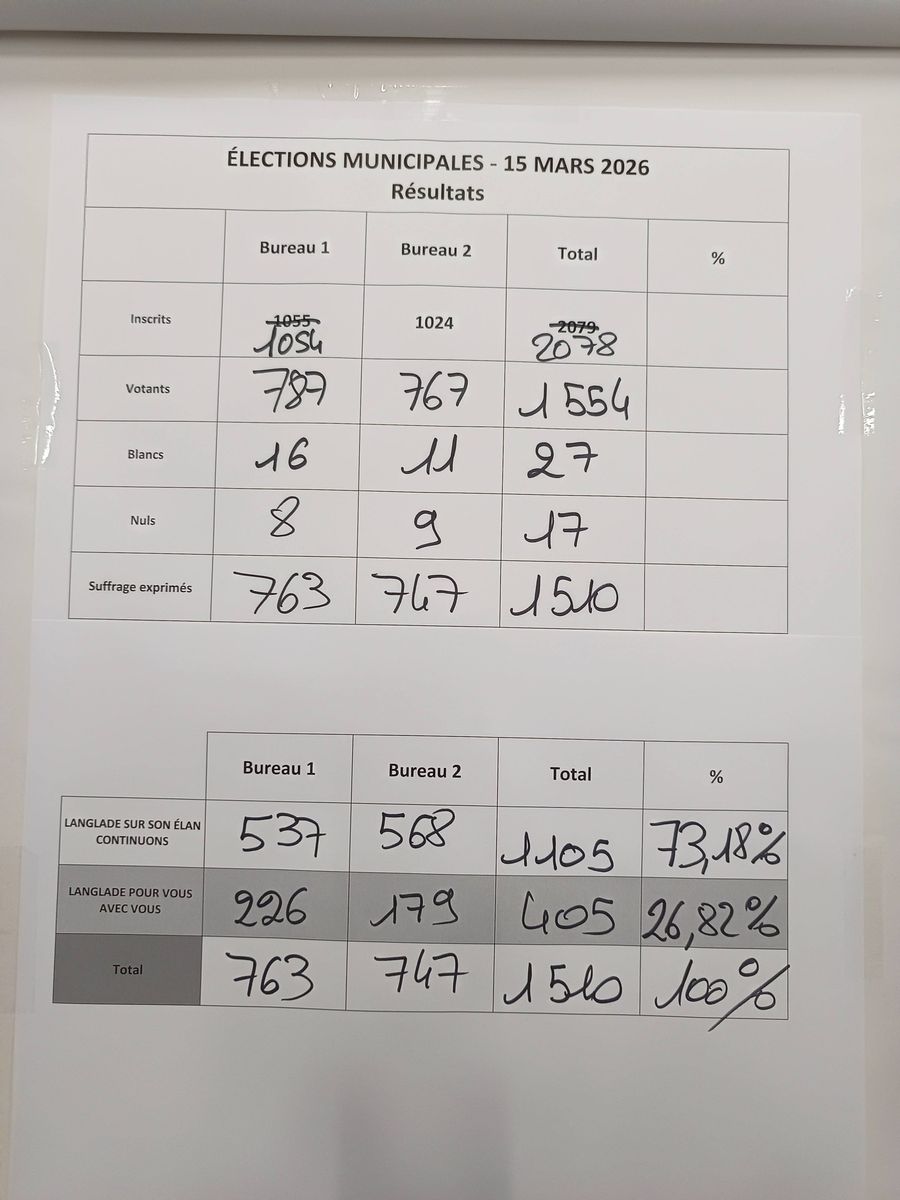 ÉLECTIONS MUNICIPALES - 15 MARS 2026
Résultats
Bureau 1 Bureau 2 Total %
Inscrits 1055 1024 2079
1054 2078
Votants 787 767 1554
Blancs 16 11 27
Nuls 8 9 17
Suffrage exprimés 763 747 1510
Bureau 1 Bureau 2 Total %
LANGLADE SUR SON ÉLAN
CONTINUONS 537 568 1105 73,18%
LANGLADE POUR VOUS
AVEC VOUS 226 179 405 26,82%
Total 763 747 1510 100%